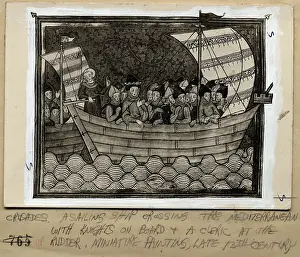 CRUSADES A SAILING SHIP CROSSING THE MEDITERRANEAN
WITH KNIGHTS ON BOARD & A CLERIC AT THE
765 RUDDER. MINIATURE PAINTING, LATE 13TH CENTURY